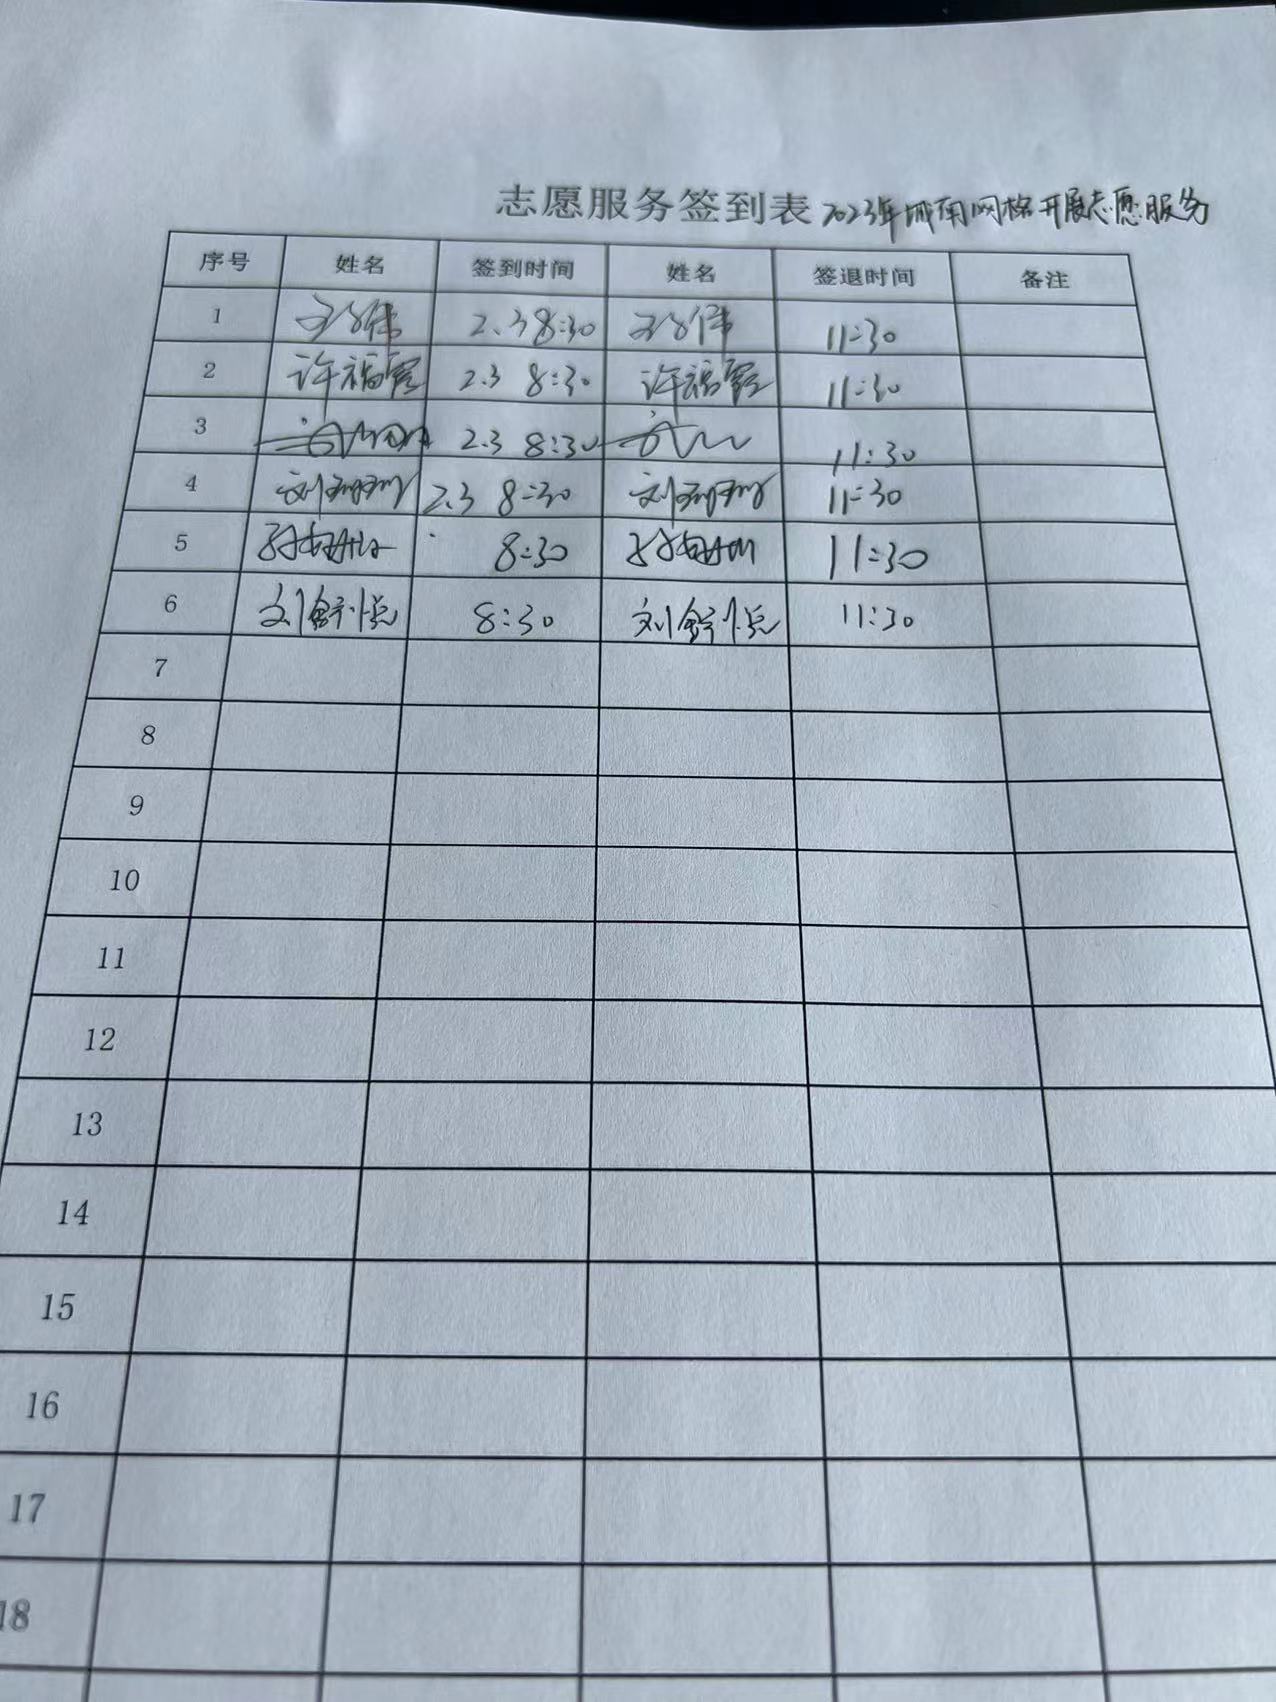 志愿服务签到表 2023年城南网格开展志愿服务
序号 姓名 签到时间 姓名 签退时间 备注
1 2.3 8:30 11:30
2 许福霞 2.3 8:30 许福霞 11:30
3 2.3 8:30 11:30
4 刘 2.3 8:30 刘 11:30
5 8:30 11:30
6 刘舒悦 8:30 刘舒悦 11:30
7
8
9
10
11
12
13
14
15
16
17
18